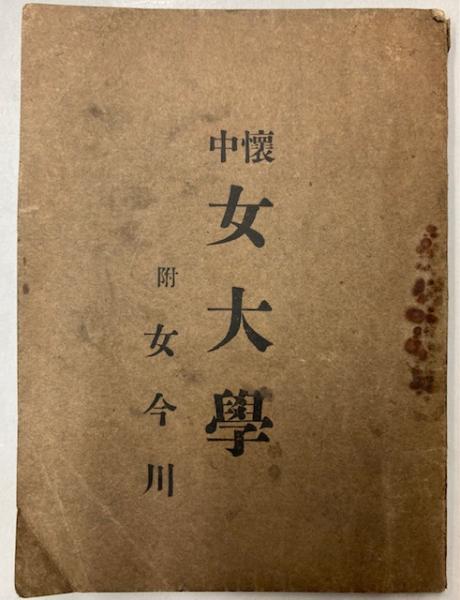 懷中
女大學
附
女今川